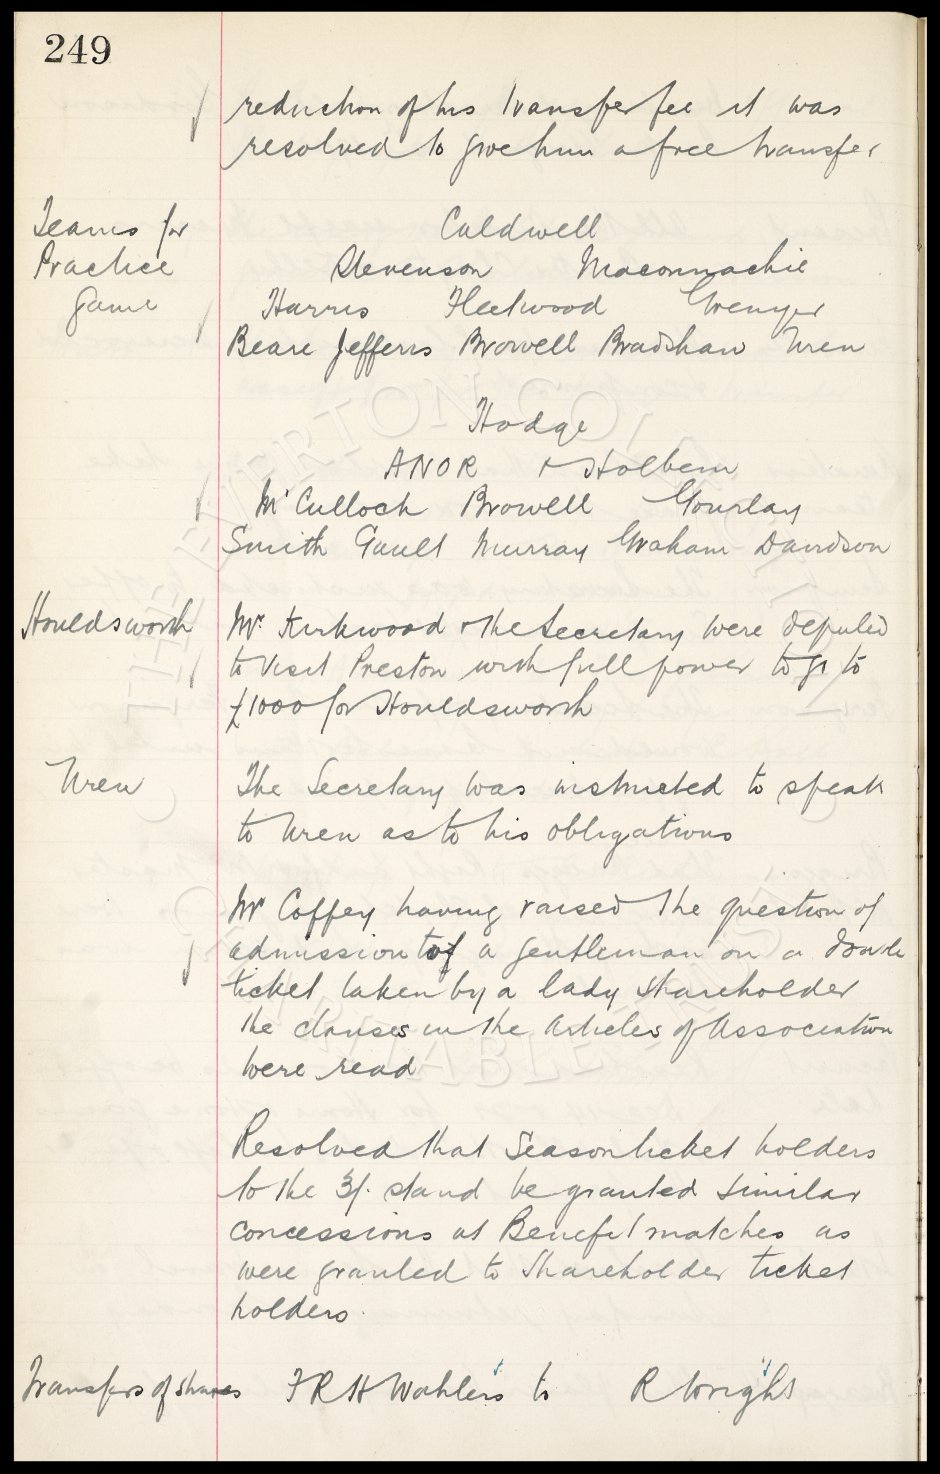 249
reduction of his transfer fee it was
resolved to give him a free transfer
Teams for
Practice
Game
Caldwell
Stevenson Maconnachie
Harris Fleetwood Grenyer
Beare Jefferis Browell Bradshaw Wren
Hodge
ANOR + Holbem
McCulloch Browell Gourlay
Smith Gault Murray Graham Davidson
Houldsworth
Mr. Kirkwood + the Secretary were deputed
to visit Preston with full power to go to
£1000 for Houldsworth
Wren
The Secretary was instructed to speak
to Wren as to his obligations
Mr Coffey having raised the question of
admission of a gentleman on a double
ticket taken by a lady shareholder
the clauses in the Articles of Association
were read
Resolved that Season ticket holders
to the 3/- stand be granted similar
concessions at Benefit matches as
were granted to Shareholder ticket
holders.
Transfers of shares
F R H Wahlers to R Wright
THE EVERTON COLLECTION
CHARITABLE TRUST